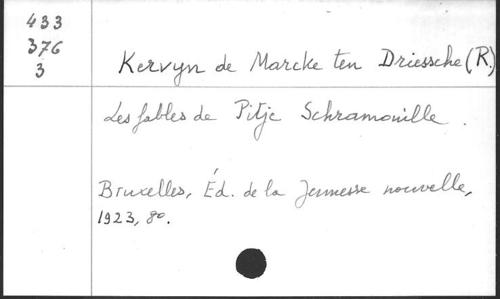 433
376
3
Kervyn de Marcke ten Driessche (R.)
Les fables de Pitje Schramouille.
Bruxelles, Éd. de la Jeunesse nouvelle,
1923, 8º.